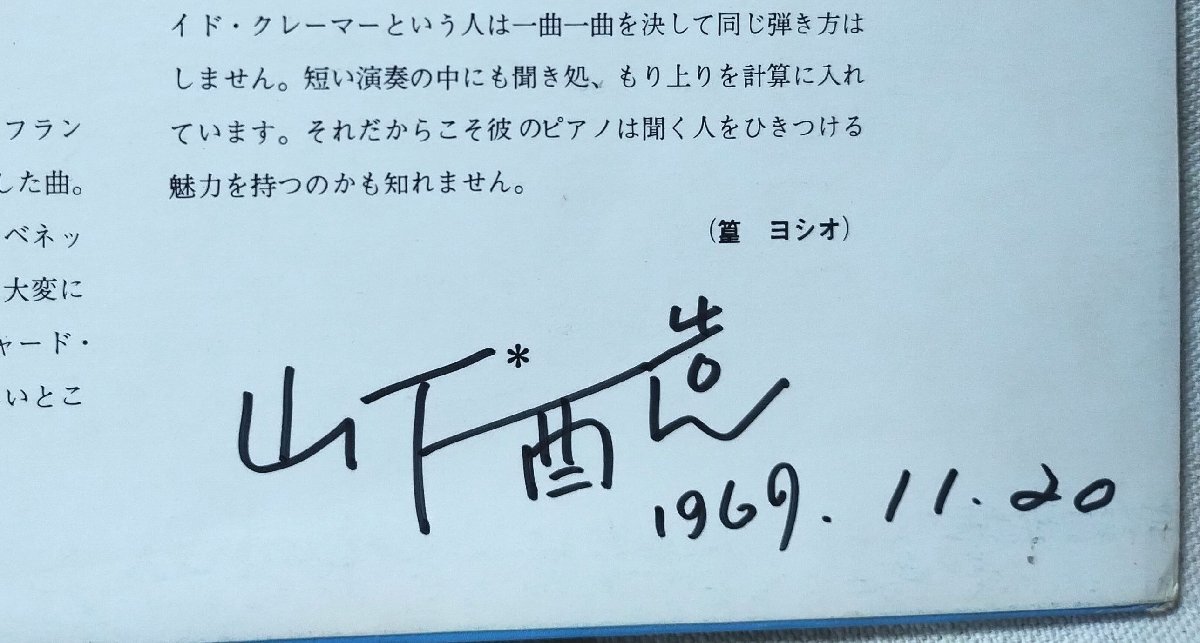 フラン
した曲。
ベネッ
大変に
ャード・
いとこ
イド・クレーマーという人は一曲一曲を決して同じ弾き方は
しません。短い演奏の中にも聞き処、もり上りを計算に入れ
ています。それだからこそ彼のピアノは聞く人をひきつける
魅力を持つのかも知れません。
(篁 ヨシオ)
山下*
1969.11.20